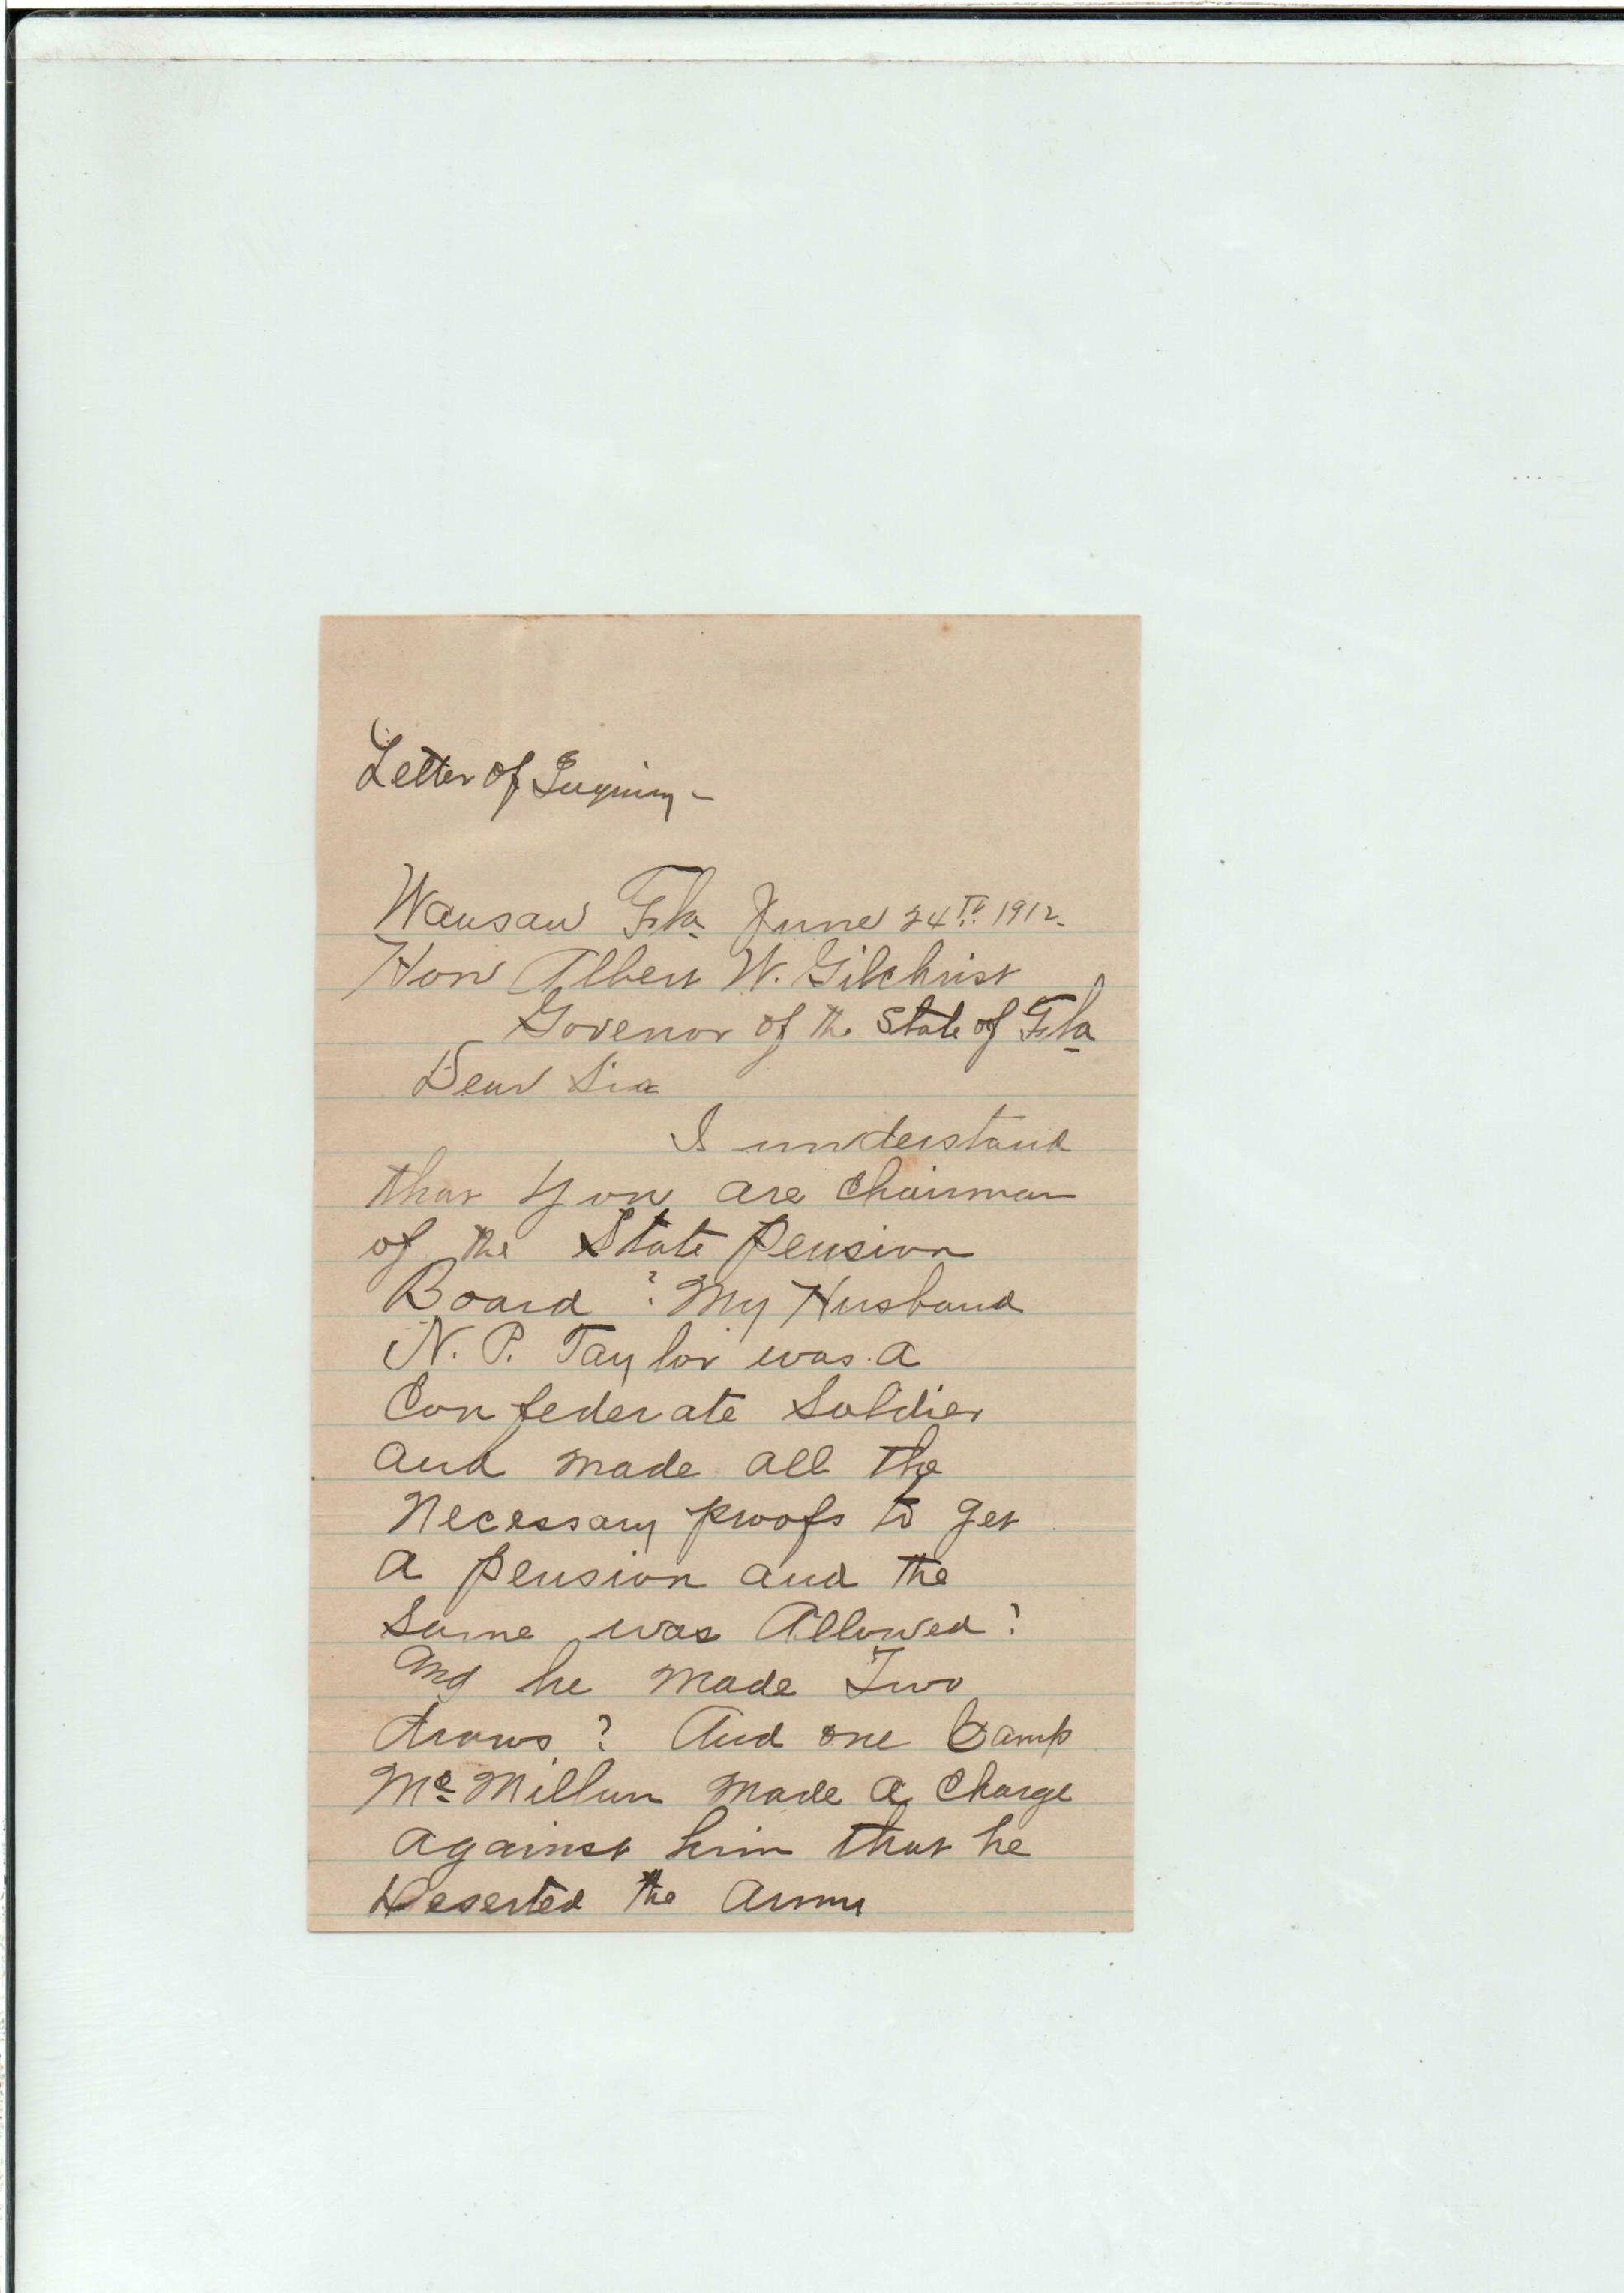 Letter of Inquiry -
Wausau Fla June 24TH 1912.
Hon Albert W. Gilchrist
Govenor of the State of Fla
Dear Sir
I understand
that you are Chairman
of the State Pension
Board ? My Husband
N. P. Taylor was a
Confederate Soldier
and made all the
Necessary proofs to get
a pension and the
Same was Allowed ?
And he made Two
draws ? And one Camp
Mc Millun made a Charge
against him that he
Deserted the Army